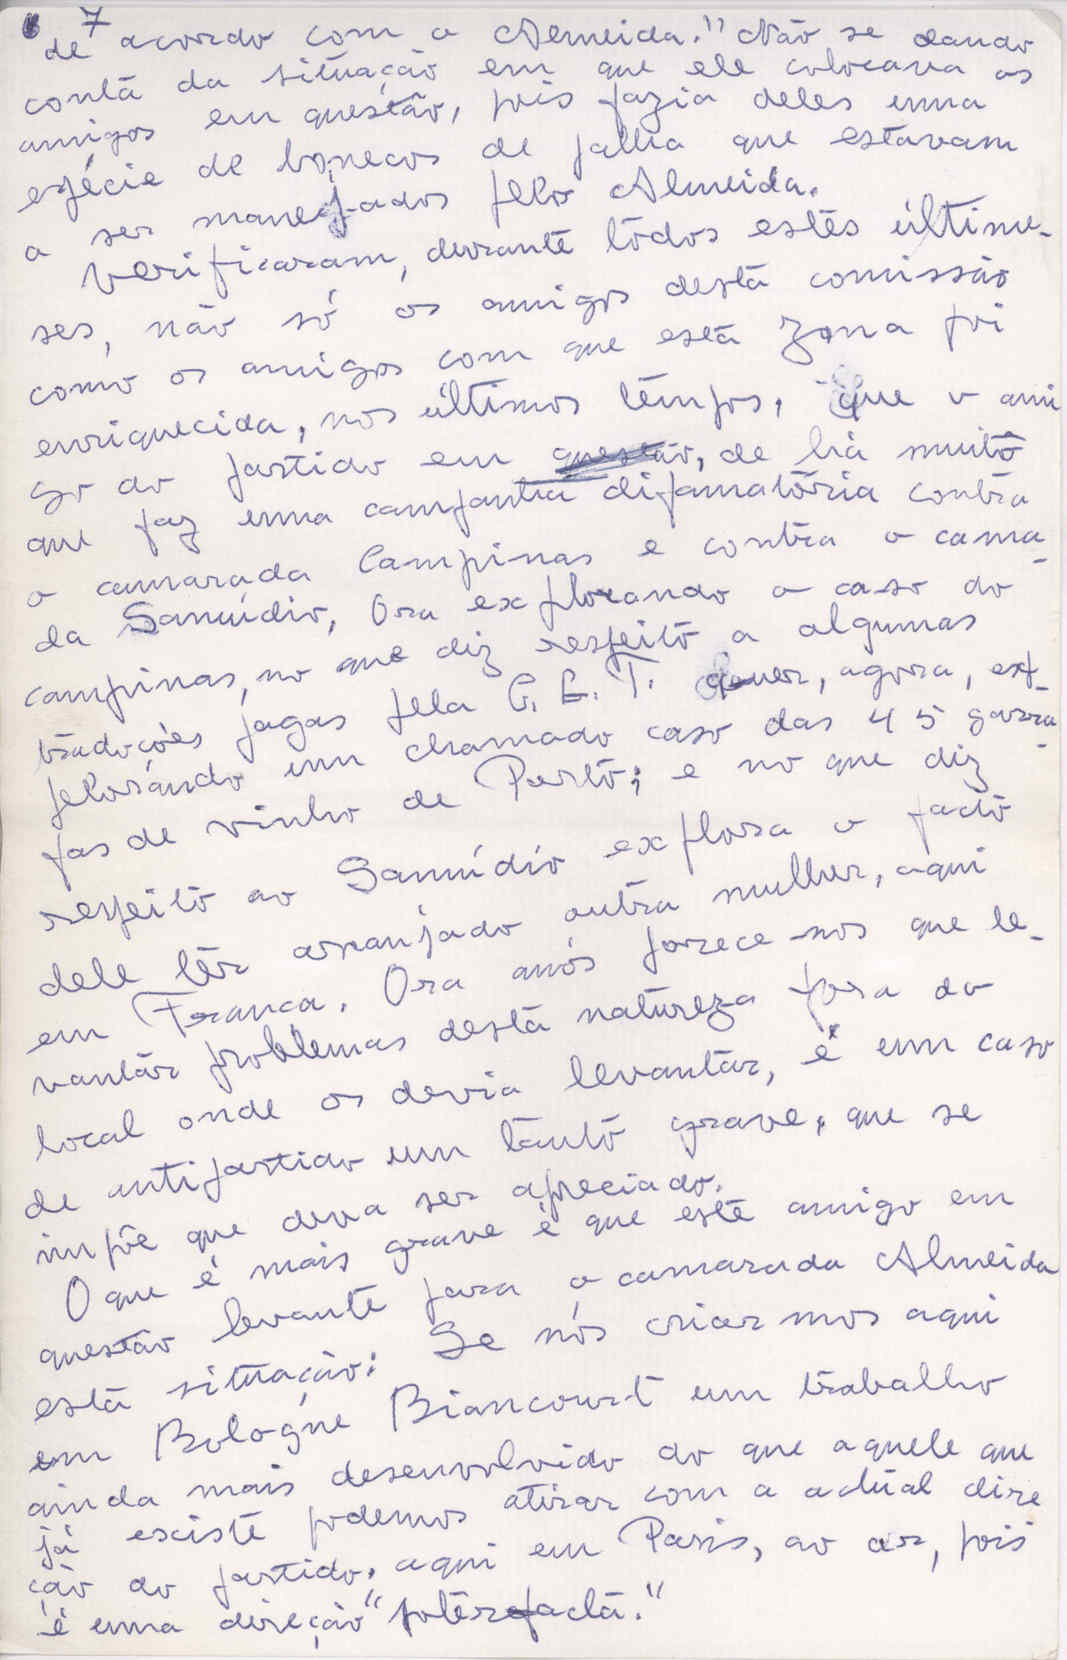 7
de acordo com o Almeida." Não se dando
conta da situação em que ele colocava os
amigos em questão, pois fazia deles uma
espécie de bonecos de palha que estavam
a ser manejados pelo Almeida.
Verificaram, durante tôdos estes últimu-
ses, não só os amigos desta comissão
como os amigos com que esta zona foi
enriquecida, nos últimos tempos, que o ami
go do partido em questão, de há muito
que faz uma campanha difamatória contra
o camarada Campinas e contra o cama-
da Samúdio, Ora explorando o caso do
campinas, no que diz respeito a algumas
traduções pagas pela C. G. T. quer, agora, exp-
pelorando um chamado caso das 45 garra-
fas de vinho de Porto; e no que diz
respeito ao Samúdio explora o facto
dele têr arranjado outra mulher, aqui
em França. Ora anós parece-nos que le-
vantar problemas desta natureza fora do
local onde os devia levantar, é um caso
de antipartido um tanto grave, que se
impõe que deva ser apreciado.
O que é mais grave é que este amigo em
questão levante para o camarada Almeida
esta situação: Se nós criarmos aqui
em Bologne Biancourt um trabalho
ainda mais desenvolvido do que aquele que
já exciste podemos atirar com a actual dire
ção do partido, aqui em Paris, ao ar, pois
é uma direcção "puterefacta."